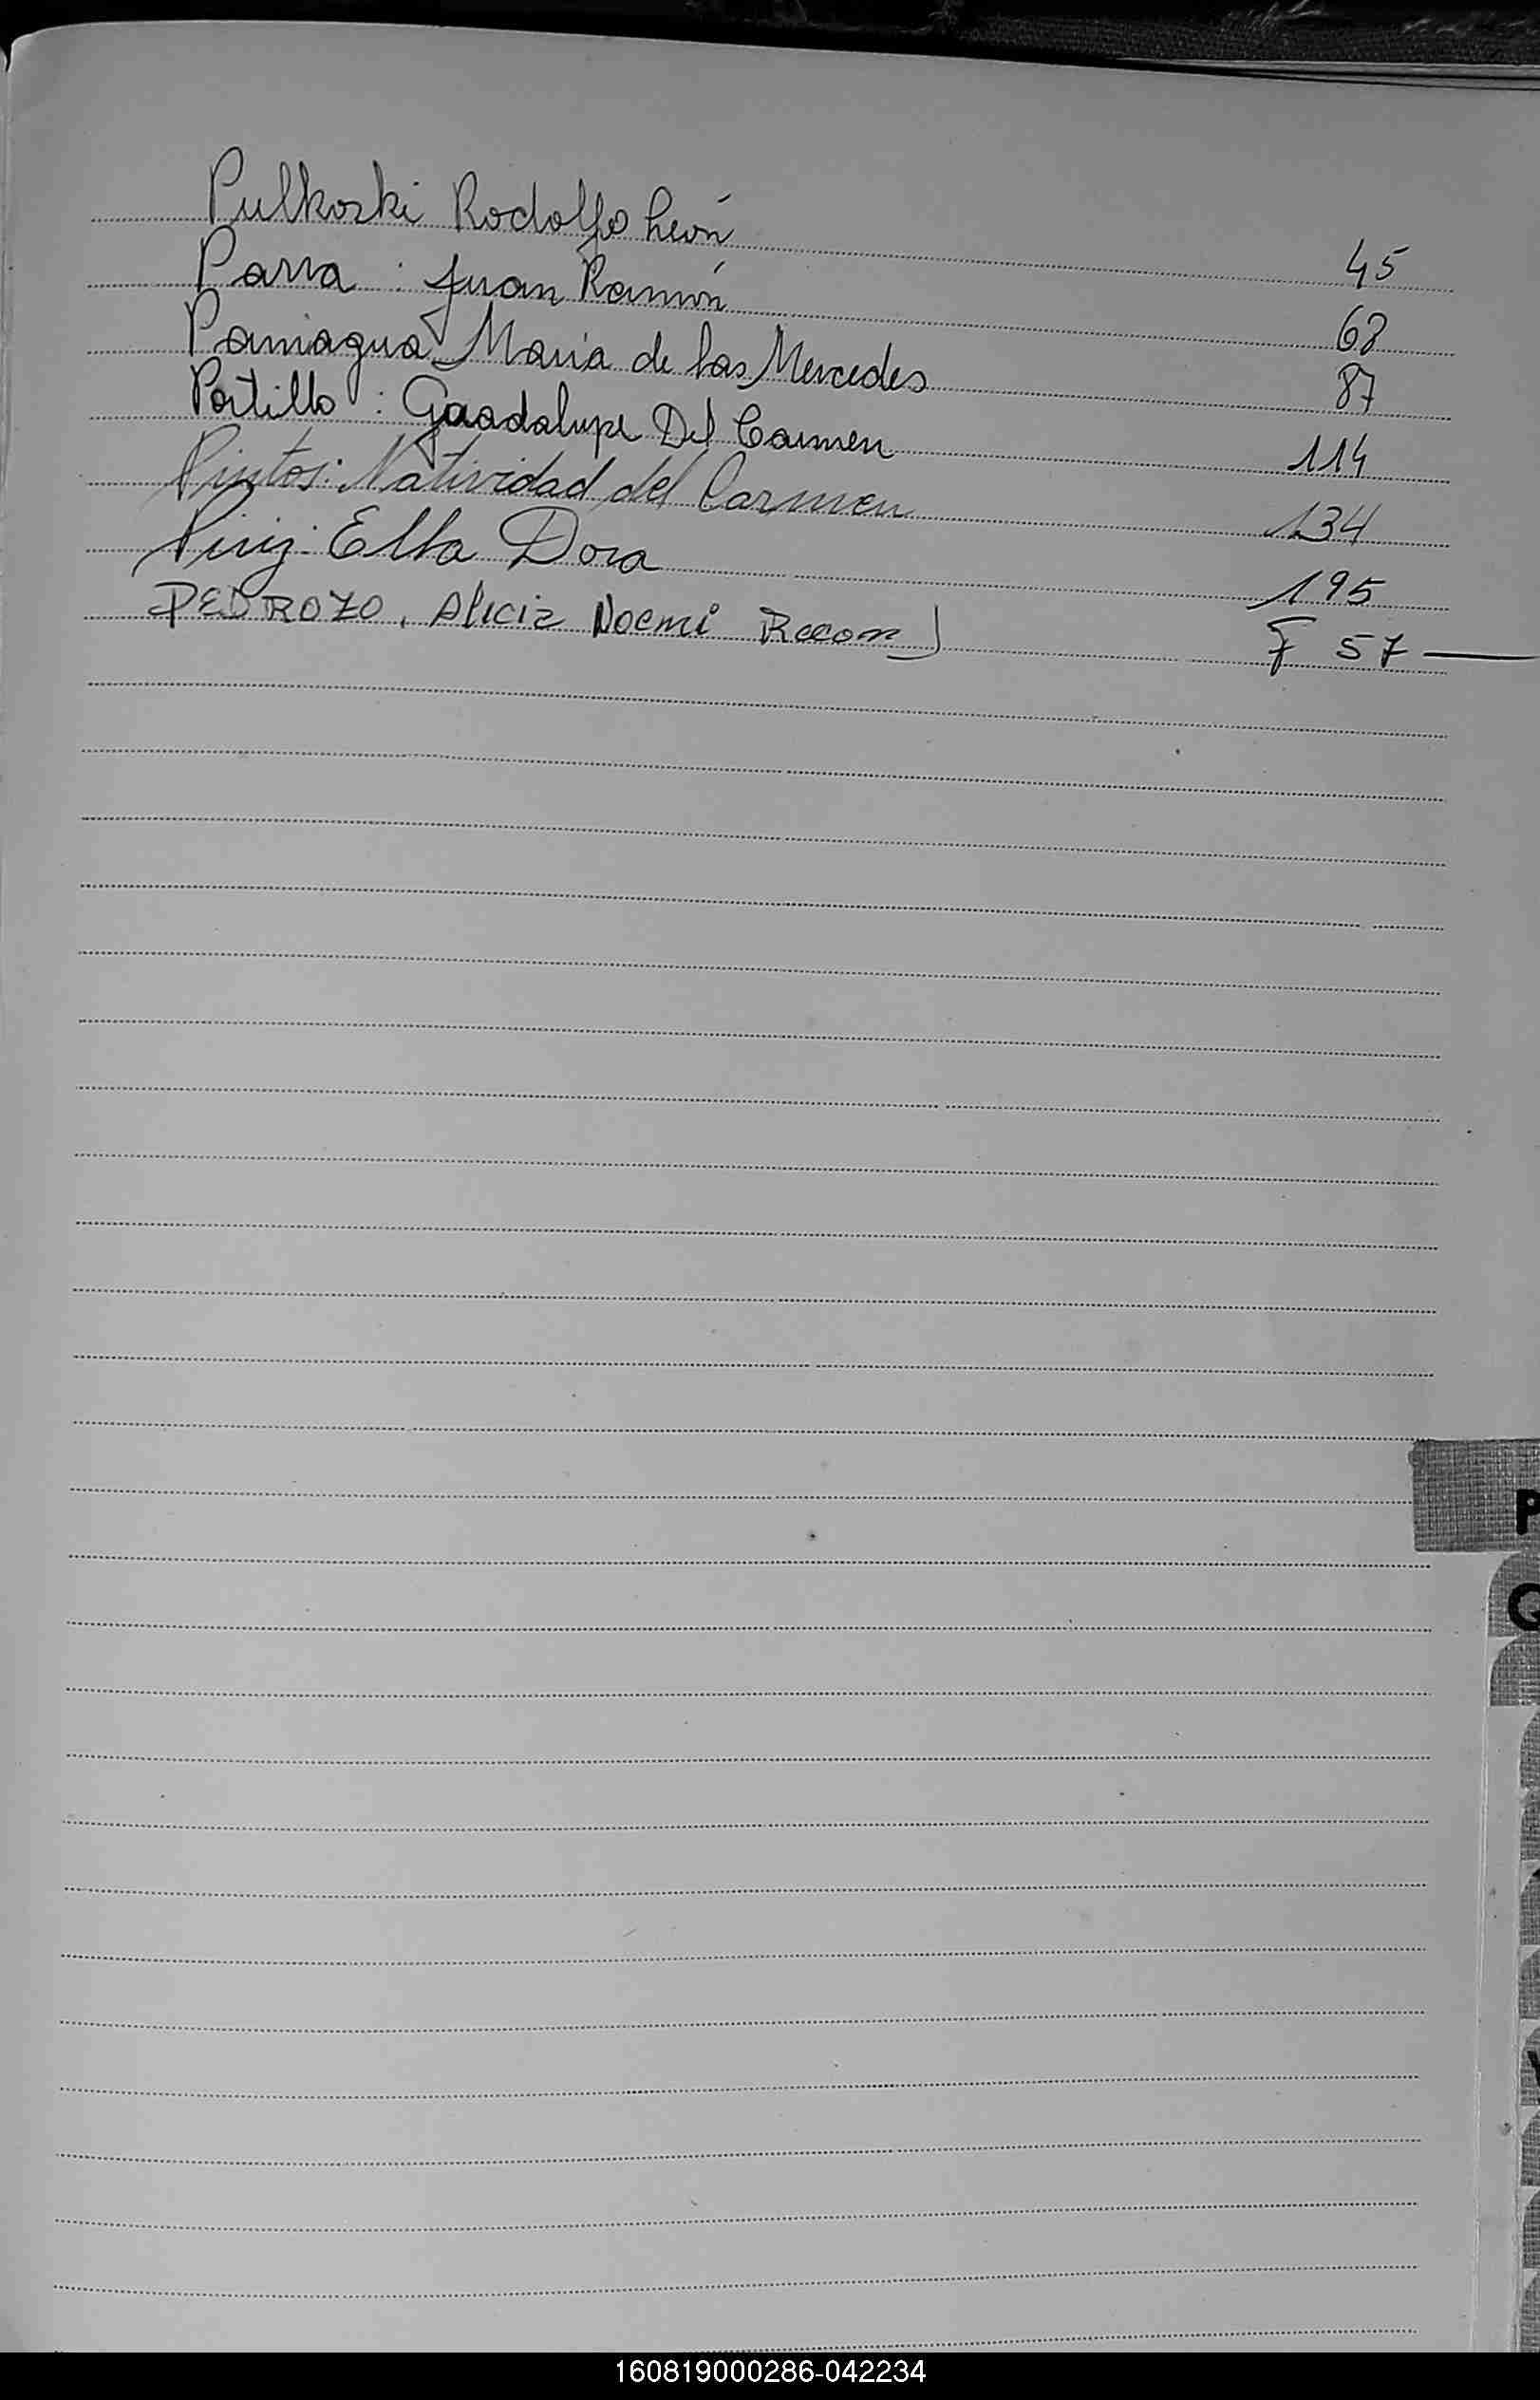 Pulkoski Rodolfo León 45
Parra : Juan Ramón 68
Paniagua María de las Mercedes 87
Portillo : Guadalupe Del Carmen 114
Pintos: Natividad del Carmen 134
Piriz: Elba Dora 195
PEDROZO, Alicia Noemi Recon) F 57
P
Q
160819000286-042234